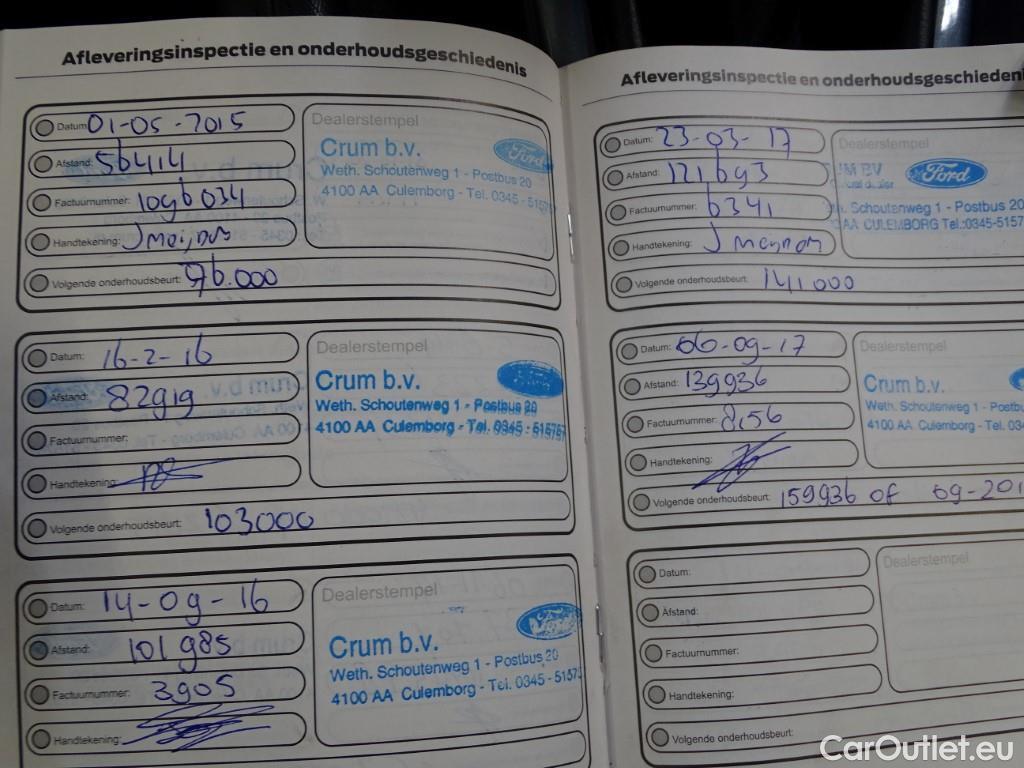 Afleveringsinspectie en onderhoudsgeschiedenis
Datum: 01-05-2015
Afstand: 56414
Factuurnummer: 1096034
Handtekening:
Volgende onderhoudsbeurt: 76.000
Dealerstempel
Crum b.v.
Ford
Weth. Schoutenweg 1 - Postbus 20
4100 AA Culemborg - Tel. 0345 - 515757
Datum: 16-2-16
Afstand: 82919
Factuurnummer:
Handtekening:
Volgende onderhoudsbeurt: 103000
Dealerstempel
Crum b.v.
Weth. Schoutenweg 1 - Postbus 20
4100 AA Culemborg - Tel. 0345 - 515757
Datum: 14-09-16
Afstand: 101985
Factuurnummer: 3905
Handtekening:
Dealerstempel
Crum b.v.
Weth. Schoutenweg 1 - Postbus 20
4100 AA Culemborg - Tel. 0345 - 5157
Afleveringsinspectie en onderhoudsgeschiedeni
Datum: 23-03-17
Afstand: 121693
Factuurnummer: 6341
Handtekening:
Volgende onderhoudsbeurt: 141000
Dealerstempel
UM BV
Ford
Schoutenweg 1 - Postbus 20
AA CULEMBORG Tel.:0345-5157
Datum: 06-09-17
Afstand: 139936
Factuurnummer: 8156
Handtekening:
Volgende onderhoudsbeurt: 159936 of 09-201
Dealerstempel
Crum b.v.
Weth. Schoutenweg 1 - Postbu
4100 AA Culemborg - Tel. 0345
Datum:
Afstand:
Factuurnummer:
Handtekening:
Volgende onderhoudsbeurt:
Dealerstempel
CarOutlet.eu